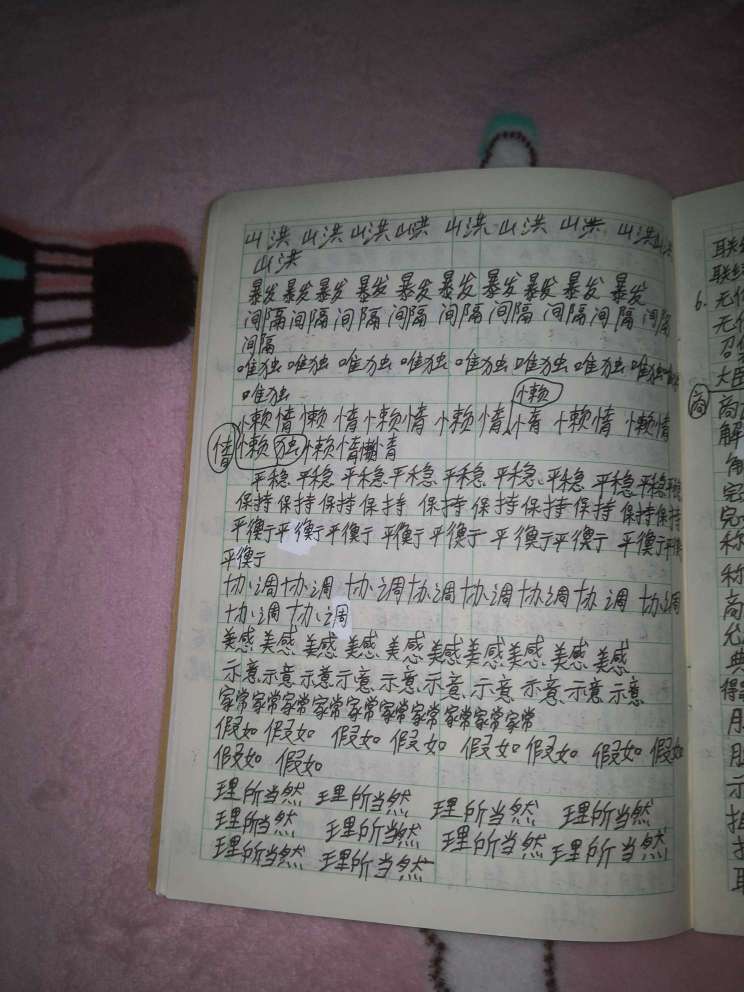 山洪 山洪 山洪 山洪 山洪 山洪 山洪 山洪 山洪
山洪
暴发 暴发 暴发 暴发 暴发 暴发 暴发 暴发 暴发 暴发
间隔 间隔 间隔 间隔 间隔 间隔 间隔 间隔 间隔
间隔
唯独 唯独 唯独 唯独 唯独 唯独 唯独 唯独 唯独
唯独
懒
懒惰 懒惰 懒惰 懒惰 惰 懒惰 懒惰
惰 懒 独 懒惰 懒惰
平稳 平稳 平稳 平稳 平稳 平稳 平稳 平稳 平稳 平稳
保持 保持 保持 保持 保持 保持 保持 保持 保持 保持
平衡 平衡 平衡 平衡 平衡 平衡 平衡 平衡 平衡
平衡
协调 协调 协调 协调 协调 协调 协调 协调
协调 协调
美感 美感 美感 美感 美感 美感 美感 美感 美感 美感
示意 示意 示意 示意 示意 示意 示意 示意 示意 示意
家常 家常 家常 家常 家常 家常 家常 家常 家常 家常
假如 假如 假如 假如 假如 假如 假如 假如
假如 假如
理所当然 理所当然 理所当然 理所当然
理所当然 理所当然 理所当然 理所当然
理所当然 理所当然
联
联
6. 无
无
大臣
商 商
解
完
完
称
称
高
允
典
月
示